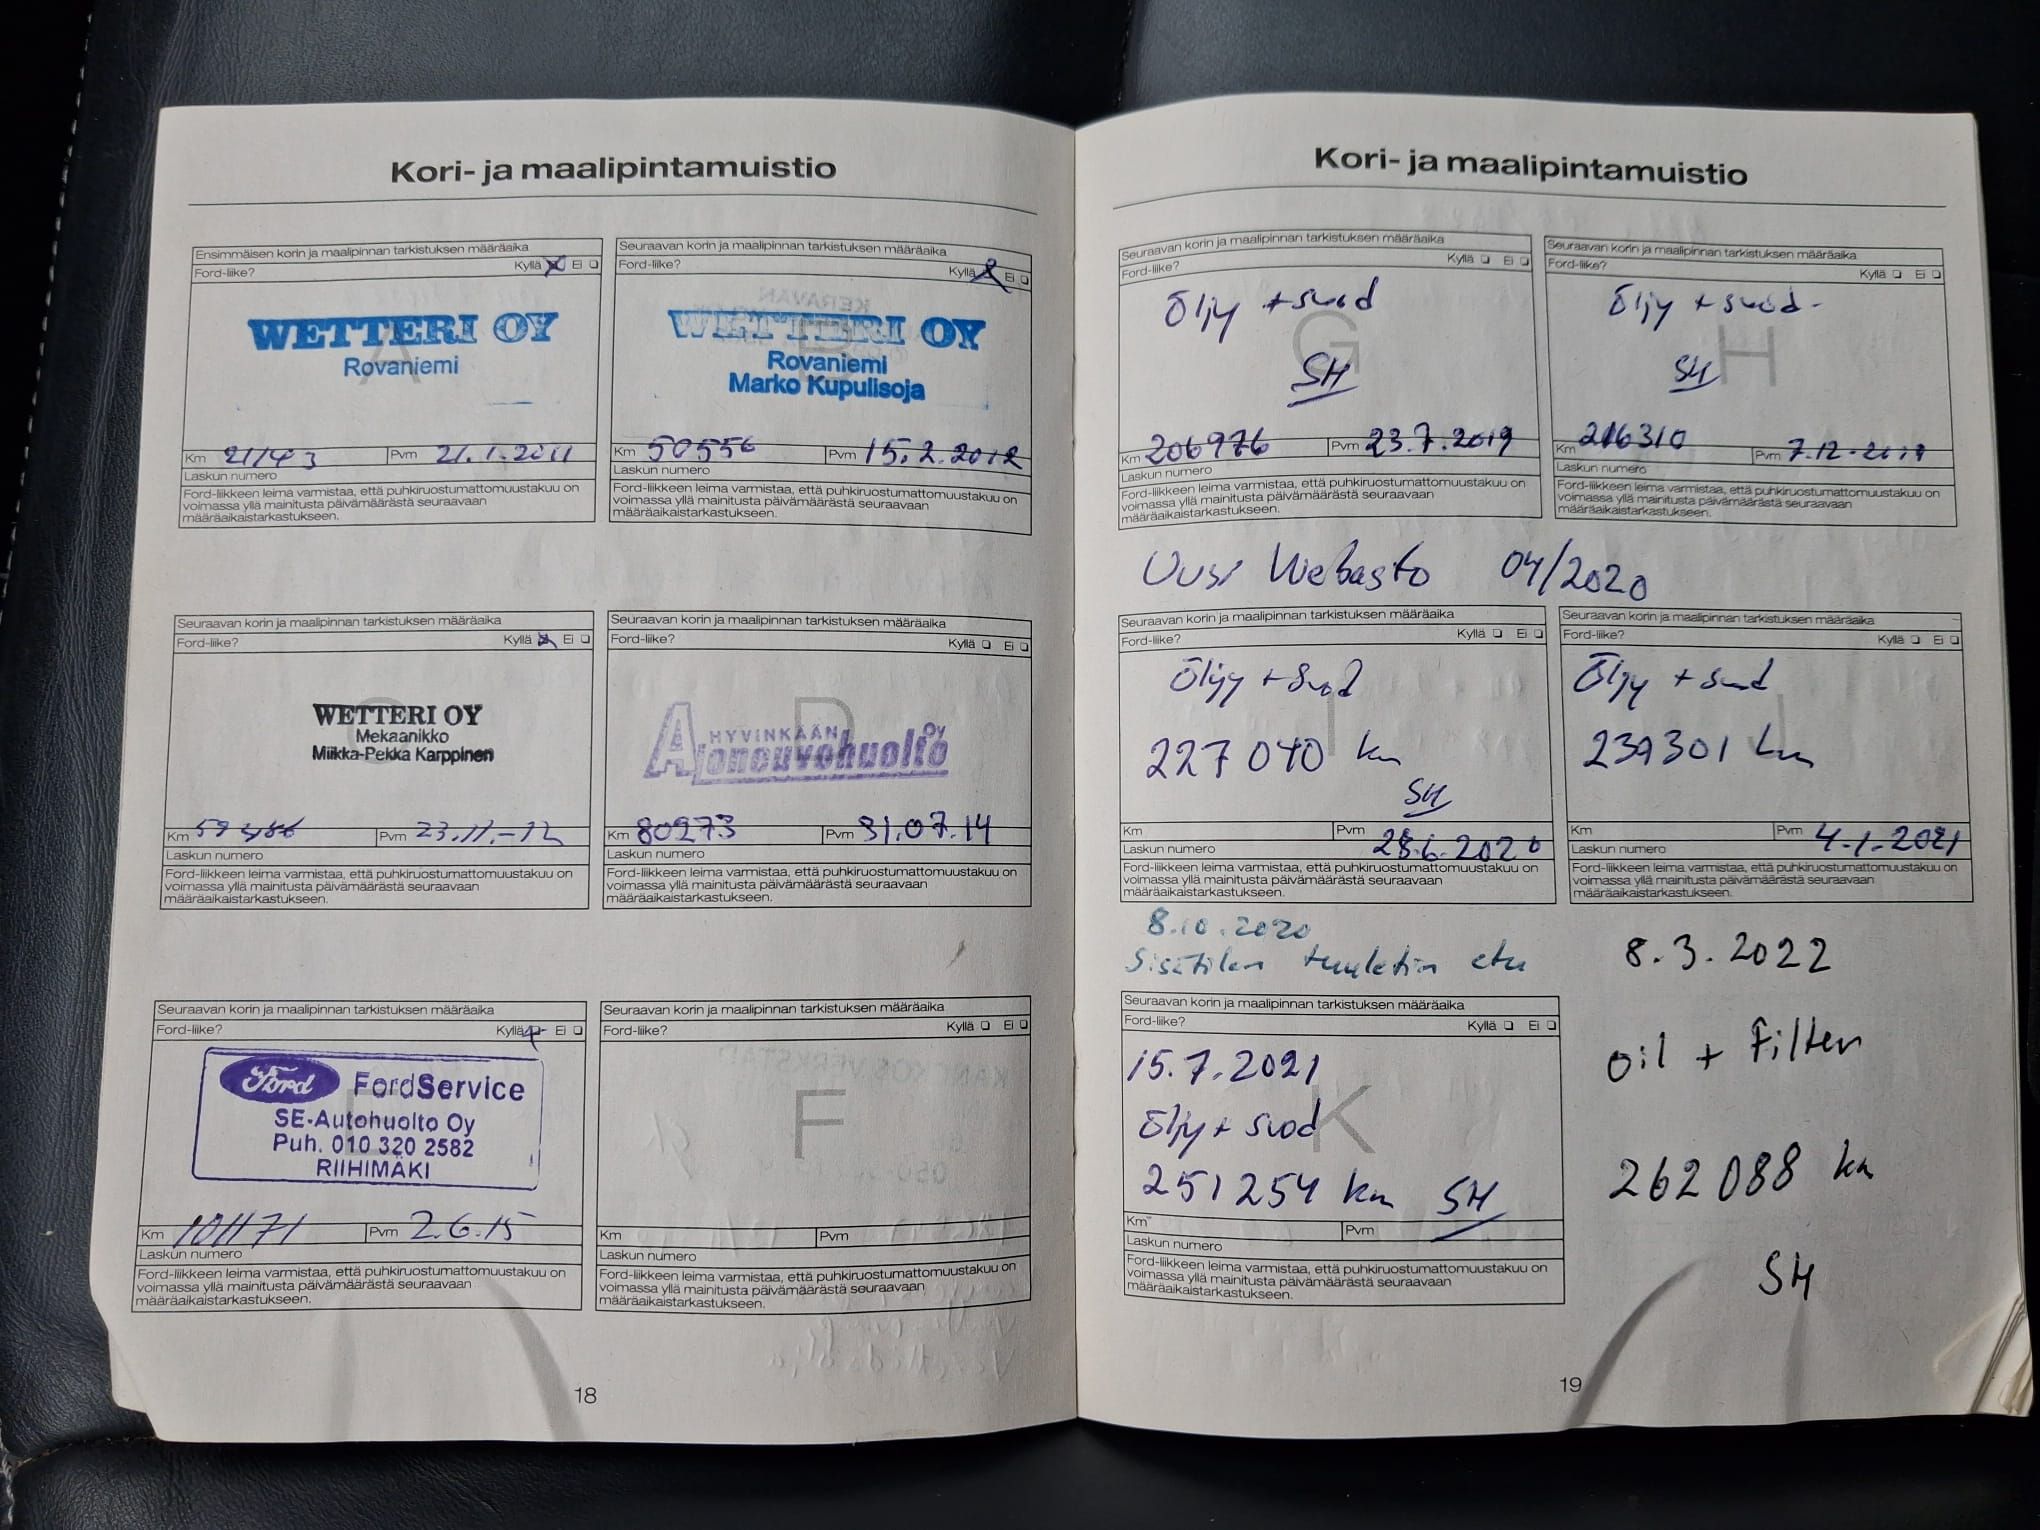 Kori- ja maalipintamuistio
Ensimmäisen korin ja maalipinnan tarkistuksen määräaika
Ford-liike? Kyllä Ei
A
WETTERI OY
Rovaniemi
Km 21743 Pvm 21.1.2011
Laskun numero
Ford-liikkeen leima varmistaa, että puhkiruostumattomuustakuu on
voimassa yllä mainitusta päivämäärästä seuraavaan
määräaikaistarkastukseen.
Seuraavan korin ja maalipinnan tarkistuksen määräaika
Ford-liike? Kyllä Ei
WETTERI OY
Rovaniemi
Marko Kupulisoja
Km 50556 Pvm 15.2.2012
Laskun numero
Ford-liikkeen leima varmistaa, että puhkiruostumattomuustakuu on
voimassa yllä mainitusta päivämäärästä seuraavaan
määräaikaistarkastukseen.
Seuraavan korin ja maalipinnan tarkistuksen määräaika
Ford-liike? Kyllä Ei
C
WETTERI OY
Mekaanikko
Miikka-Pekka Karppinen
Km Pvm 23.11.-12
Laskun numero
Ford-liikkeen leima varmistaa, että puhkiruostumattomuustakuu on
voimassa yllä mainitusta päivämäärästä seuraavaan
määräaikaistarkastukseen.
Seuraavan korin ja maalipinnan tarkistuksen määräaika
Ford-liike? Kyllä Ei
D
HYVINKÄÄN OY
Ajoneuvohuolto
Km 80273 Pvm 31.07.14
Laskun numero
Ford-liikkeen leima varmistaa, että puhkiruostumattomuustakuu on
voimassa yllä mainitusta päivämäärästä seuraavaan
määräaikaistarkastukseen.
Seuraavan korin ja maalipinnan tarkistuksen määräaika
Ford-liike? Kyllä Ei
E
Ford FordService
SE-Autohuolto Oy
Puh. 010 320 2582
RIIHIMÄKI
Km 101171 Pvm 2.6.15
Laskun numero
Ford-liikkeen leima varmistaa, että puhkiruostumattomuustakuu on
voimassa yllä mainitusta päivämäärästä seuraavaan
määräaikaistarkastukseen.
Seuraavan korin ja maalipinnan tarkistuksen määräaika
Ford-liike? Kyllä Ei
F
Km Pvm
Laskun numero
Ford-liikkeen leima varmistaa, että puhkiruostumattomuustakuu on
voimassa yllä mainitusta päivämäärästä seuraavaan
määräaikaistarkastukseen.
18
Kori- ja maalipintamuistio
Seuraavan korin ja maalipinnan tarkistuksen määräaika
Ford-liike? Kyllä Ei
Öljy + suod
G
SH
Km 206976 Pvm 23.7.2019
Laskun numero
Ford-liikkeen leima varmistaa, että puhkiruostumattomuustakuu on
voimassa yllä mainitusta päivämäärästä seuraavaan
määräaikaistarkastukseen.
Seuraavan korin ja maalipinnan tarkistuksen määräaika
Ford-liike? Kyllä Ei
Öljy + suod.
H
SH
Km 216310 Pvm 7.12.2019
Laskun numero
Ford-liikkeen leima varmistaa, että puhkiruostumattomuustakuu on
voimassa yllä mainitusta päivämäärästä seuraavaan
määräaikaistarkastukseen.
Uusi Webasto 04/2020
Seuraavan korin ja maalipinnan tarkistuksen määräaika
Ford-liike? Kyllä Ei
Öljy + suod
I
227 040 km
SH
Km Pvm
Laskun numero 28.6.2020
Ford-liikkeen leima varmistaa, että puhkiruostumattomuustakuu on
voimassa yllä mainitusta päivämäärästä seuraavaan
määräaikaistarkastukseen.
Seuraavan korin ja maalipinnan tarkistuksen määräaika
Ford-liike? Kyllä Ei
Öljy + suod
J
239301 km
Km Pvm 4.1.2021
Laskun numero
Ford-liikkeen leima varmistaa, että puhkiruostumattomuustakuu on
voimassa yllä mainitusta päivämäärästä seuraavaan
määräaikaistarkastukseen.
8.10.2020
Sisätilan tuuletin etu
Seuraavan korin ja maalipinnan tarkistuksen määräaika
Ford-liike? Kyllä Ei
15.7.2021
K
Öljy + suod
251254 km SH
Km Pvm
Laskun numero
Ford-liikkeen leima varmistaa, että puhkiruostumattomuustakuu on
voimassa yllä mainitusta päivämäärästä seuraavaan
määräaikaistarkastukseen.
8.3.2022
oil + Filter
262 088 km
SH
19